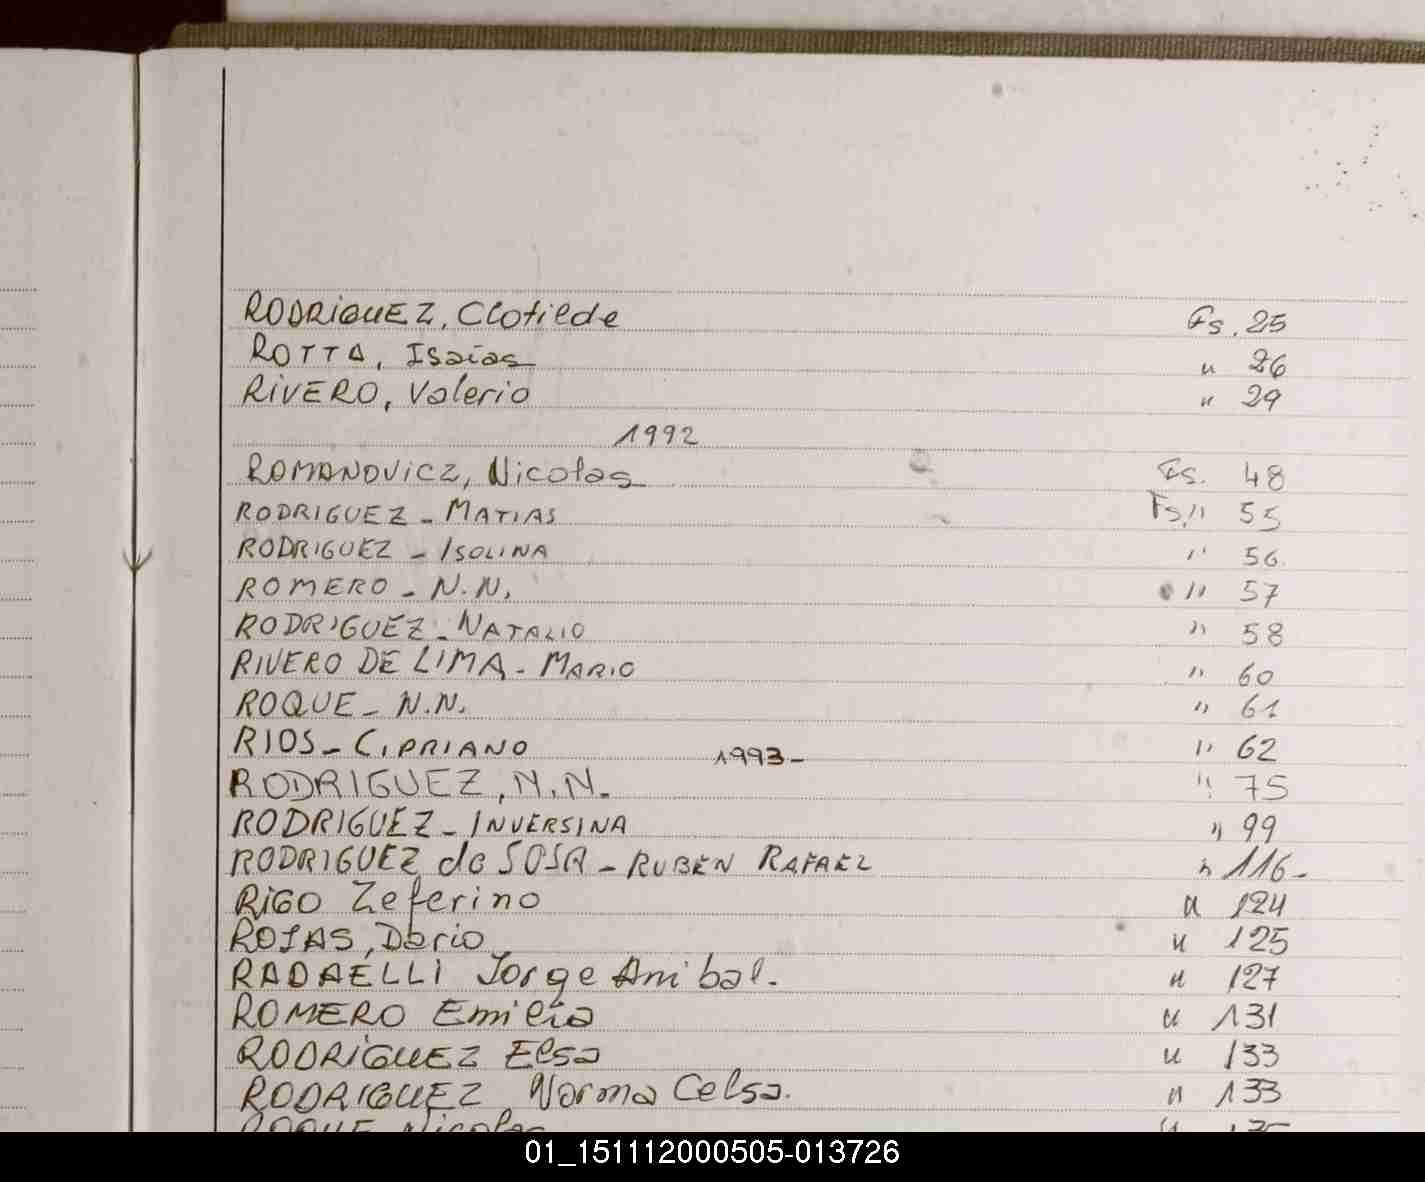 RODRIGUEZ, Clotilde Fs. 25
ROTTA, Isaías " 26
RIVERO, Valerio " 29
1992
ROMANOVICZ, Nicolas Fs. 48
RODRIGUEZ - MATIAS Fs, " 55
RODRIGUEZ - ISOLINA " 56
ROMERO - N.N. " 57
RODRIGUEZ - NATALIO " 58
RIVERO DE LIMA - MARIO " 60
ROQUE - N.N. " 61
RIOS - CIPRIANO " 62
1993-
RODRIGUEZ, N.N. " 75
RODRIGUEZ - INVERSINA " 99
RODRIGUEZ de SOSA - RUBEN RAFAEL " 116-
RIGO Zeferino " 124
ROJAS, Dario " 125
RADAELLI Jorge Anibal. " 127
ROMERO Emilia " 131
RODRIGUEZ Elsa " 133
RODRIGUEZ Norma Celsa. " 133
ROQUE Nicolas
01_151112000505-013726